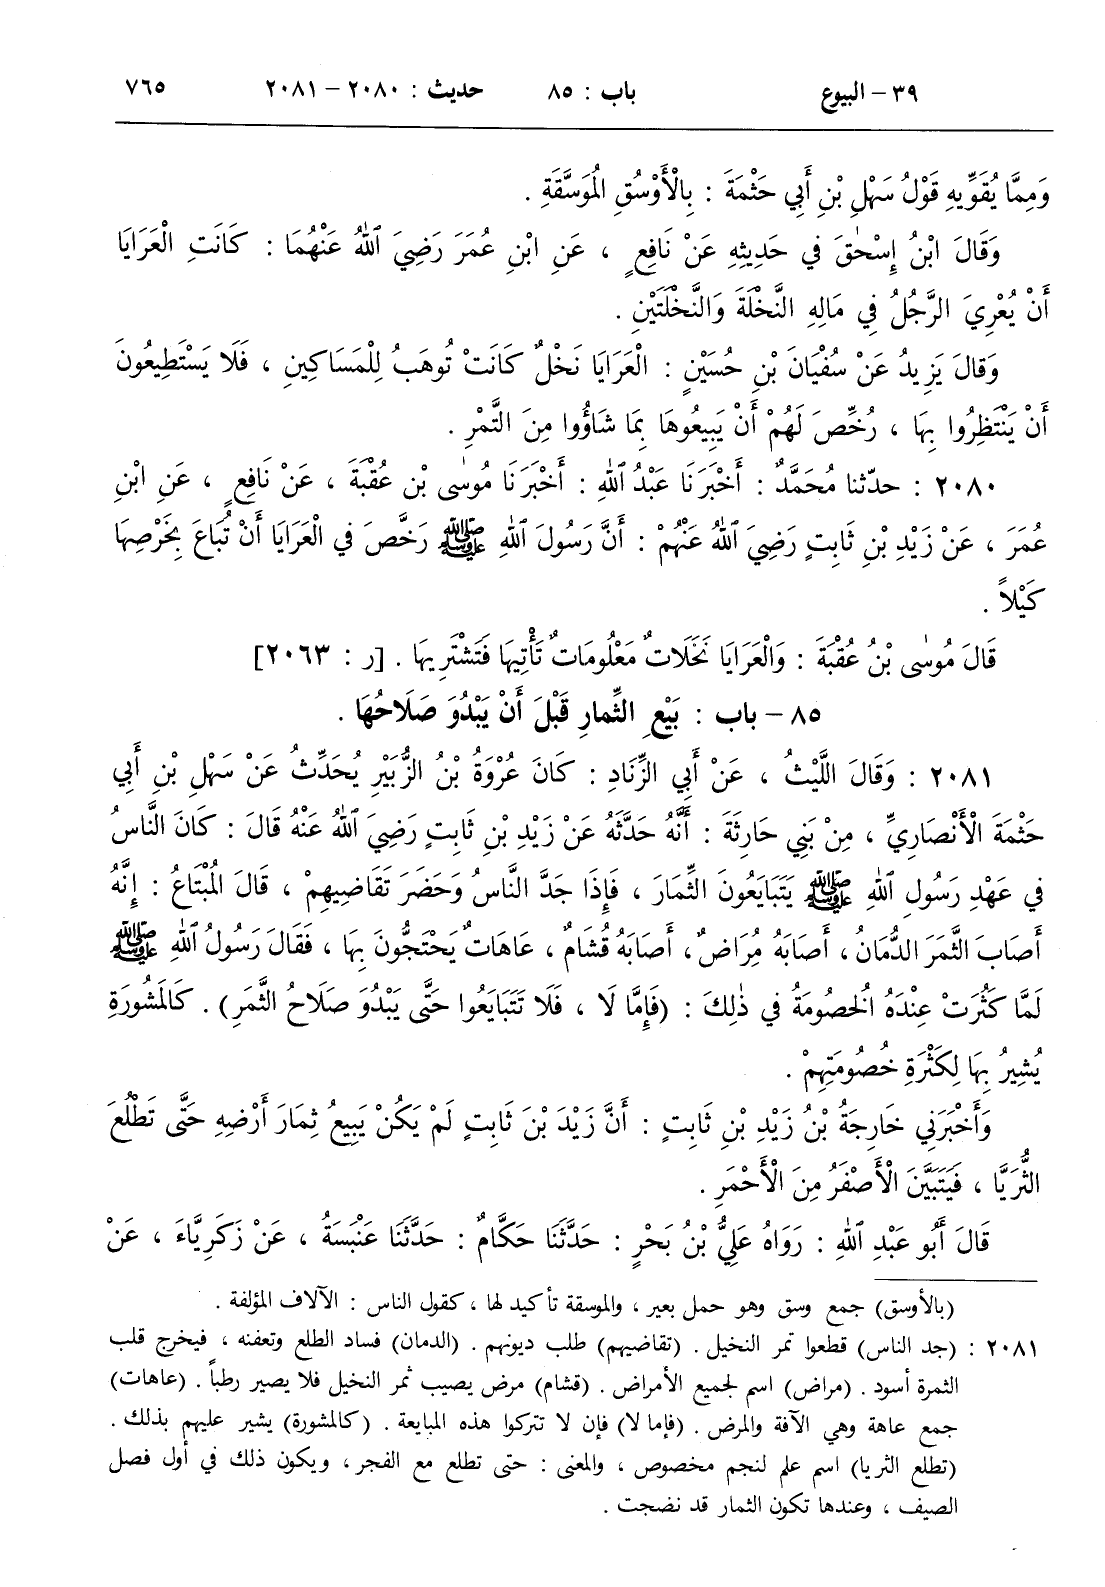 ٣٩ – البيوع باب : ٨٥ حديث : ٢٠٨٠ – ٢٠٨١ ٧٦٥
وَمِمَّا يُقَوِّيهِ قَوْلُ سَهْلِ بْنِ أَبِي حَثْمَةَ : بِالْأَوْسُقِ الْمُوَسَّقَةِ .
وَقَالَ ابْنُ إِسْحٰقَ في حَدِيثِهِ عَنْ نَافِعٍ ، عَنِ ابْنِ عُمَرَ رَضِيَ ٱللهُ عَنْهُمَا : كَانَتِ الْعَرَايَا
أَنْ يُعْرِيَ الرَّجُلُ فِي مَالِهِ النَّخْلَةَ وَالنَّخْلَتَيْنِ .
وَقَالَ يَزِيدُ عَنْ سُفْيَانَ بْنِ حُسَيْنٍ : الْعَرَايَا نَخْلٌ كَانَتْ تُوهَبُ لِلْمَسَاكِينِ ، فَلَا يَسْتَطِيعُونَ
أَنْ يَنْتَظِرُوا بِهَا ، رُخِّصَ لَهُمْ أَنْ يَبِيعُوهَا بِمَا شَاؤُوا مِنَ التَّمْرِ .
٢٠٨٠ : حدّثنا مُحَمَّدٌ : أَخْبَرَنَا عَبْدُ ٱللهِ : أَخْبَرَنَا مُوسٰى بْنُ عُقْبَةَ ، عَنْ نَافِعٍ ، عَنِ ابْنِ
عُمَرَ ، عَنْ زَيْدِ بْنِ ثَابِتٍ رَضِيَ ٱللهُ عَنْهُمْ : أَنَّ رَسُولَ ٱللهِ ﷺ رَخَّصَ في الْعَرَايَا أَنْ تُبَاعَ بِخَرْصِهَا
كَيْلاً .
قَالَ مُوسٰى بْنُ عُقْبَةَ : وَالْعَرَايَا نَخَلَاتٌ مَعْلُومَاتٌ تَأْتِيهَا فَتَشْتَرِيهَا . [ر : ٢٠٦٣]
٨٥ – باب : بَيْعِ الثِّمارِ قَبْلَ أَنْ يَبْدُوَ صَلَاحُهَا .
٢٠٨١ : وَقَالَ اللَّيْثُ ، عَنْ أَبِي الزِّنَادِ : كَانَ عُرْوَةُ بْنُ الزُّبَيْرِ يُحَدِّثُ عَنْ سَهْلِ بْنِ أَبِي
حَثْمَةَ الْأَنْصَارِيِّ ، مِنْ بَنِي حَارِثَةَ : أَنَّهُ حَدَّثَهُ عَنْ زَيْدِ بْنِ ثَابِتٍ رَضِيَ ٱللهُ عَنْهُ قَالَ : كَانَ النَّاسُ
في عَهْدِ رَسُولِ ٱللهِ ﷺ يَتَبَايَعُونَ الثِّمَارَ ، فَإِذَا جَدَّ النَّاسُ وَحَضَرَ تَقَاضِيهِمْ ، قَالَ الْمُبْتَاعُ : إِنَّهُ
أَصَابَ الثَّمَرَ الدُّمَانُ ، أَصَابَهُ مِرَاضٌ ، أَصَابَهُ قُشَامٌ ، عَاهَاتٌ يَحْتَجُّونَ بِهَا ، فَقَالَ رَسُولُ ٱللهِ ﷺ
لَمَّا كَثُرَتْ عِنْدَهُ الْخُصُومَةُ في ذٰلِكَ : (فَإِمَّا لَا ، فَلَا تَتَبَايَعُوا حَتَّى يَبْدُوَ صَلَاحُ الثَّمَرِ) . كَالْمَشُورَةِ
يُشِيرُ بِهَا لِكَثْرَةِ خُصُومَتِهِمْ .
وَأَخْبَرَنِي خَارِجَةُ بْنُ زَيْدِ بْنِ ثَابِتٍ : أَنَّ زَيْدَ بْنَ ثَابِتٍ لَمْ يَكُنْ يَبِيعُ ثِمَارَ أَرْضِهِ حَتَّى تَطْلُعَ
الثُّرَيَّا ، فَيَتَبَيَّنَ الْأَصْفَرُ مِنَ الْأَحْمَرِ .
قَالَ أَبُو عَبْدِ ٱللهِ : رَوَاهُ عَلِيُّ بْنُ بَحْرٍ : حَدَّثَنَا حَكَّامٌ : حَدَّثَنَا عَنْبَسَةُ ، عَنْ زَكَرِيَّاءَ ، عَنْ
(بالأوسق) جمع وسق وهو حمل بعير ، والموسقة تأكيد لها ، كقول الناس : الآلاف المؤلفة .
٢٠٨١ : (جد الناس) قطعوا تمر النخيل . (تقاضيهم) طلب ديونهم . (الدمان) فساد الطلع وتعفنه ، فيخرج قلب
الثمرة أسود . (مراض) اسم لجميع الأمراض . (قشام) مرض يصيب ثمر النخيل فلا يصير رطباً . (عاهات)
جمع عاهة وهي الآفة والمرض . (فإما لا) فإن لا تتركوا هذه المبايعة . (كالمشورة) يشير عليهم بذلك .
(تطلع الثريا) اسم علم لنجم مخصوص ، والمعنى : حتى تطلع مع الفجر ، ويكون ذلك في أول فصل
الصيف ، وعندها تكون الثمار قد نضجت .